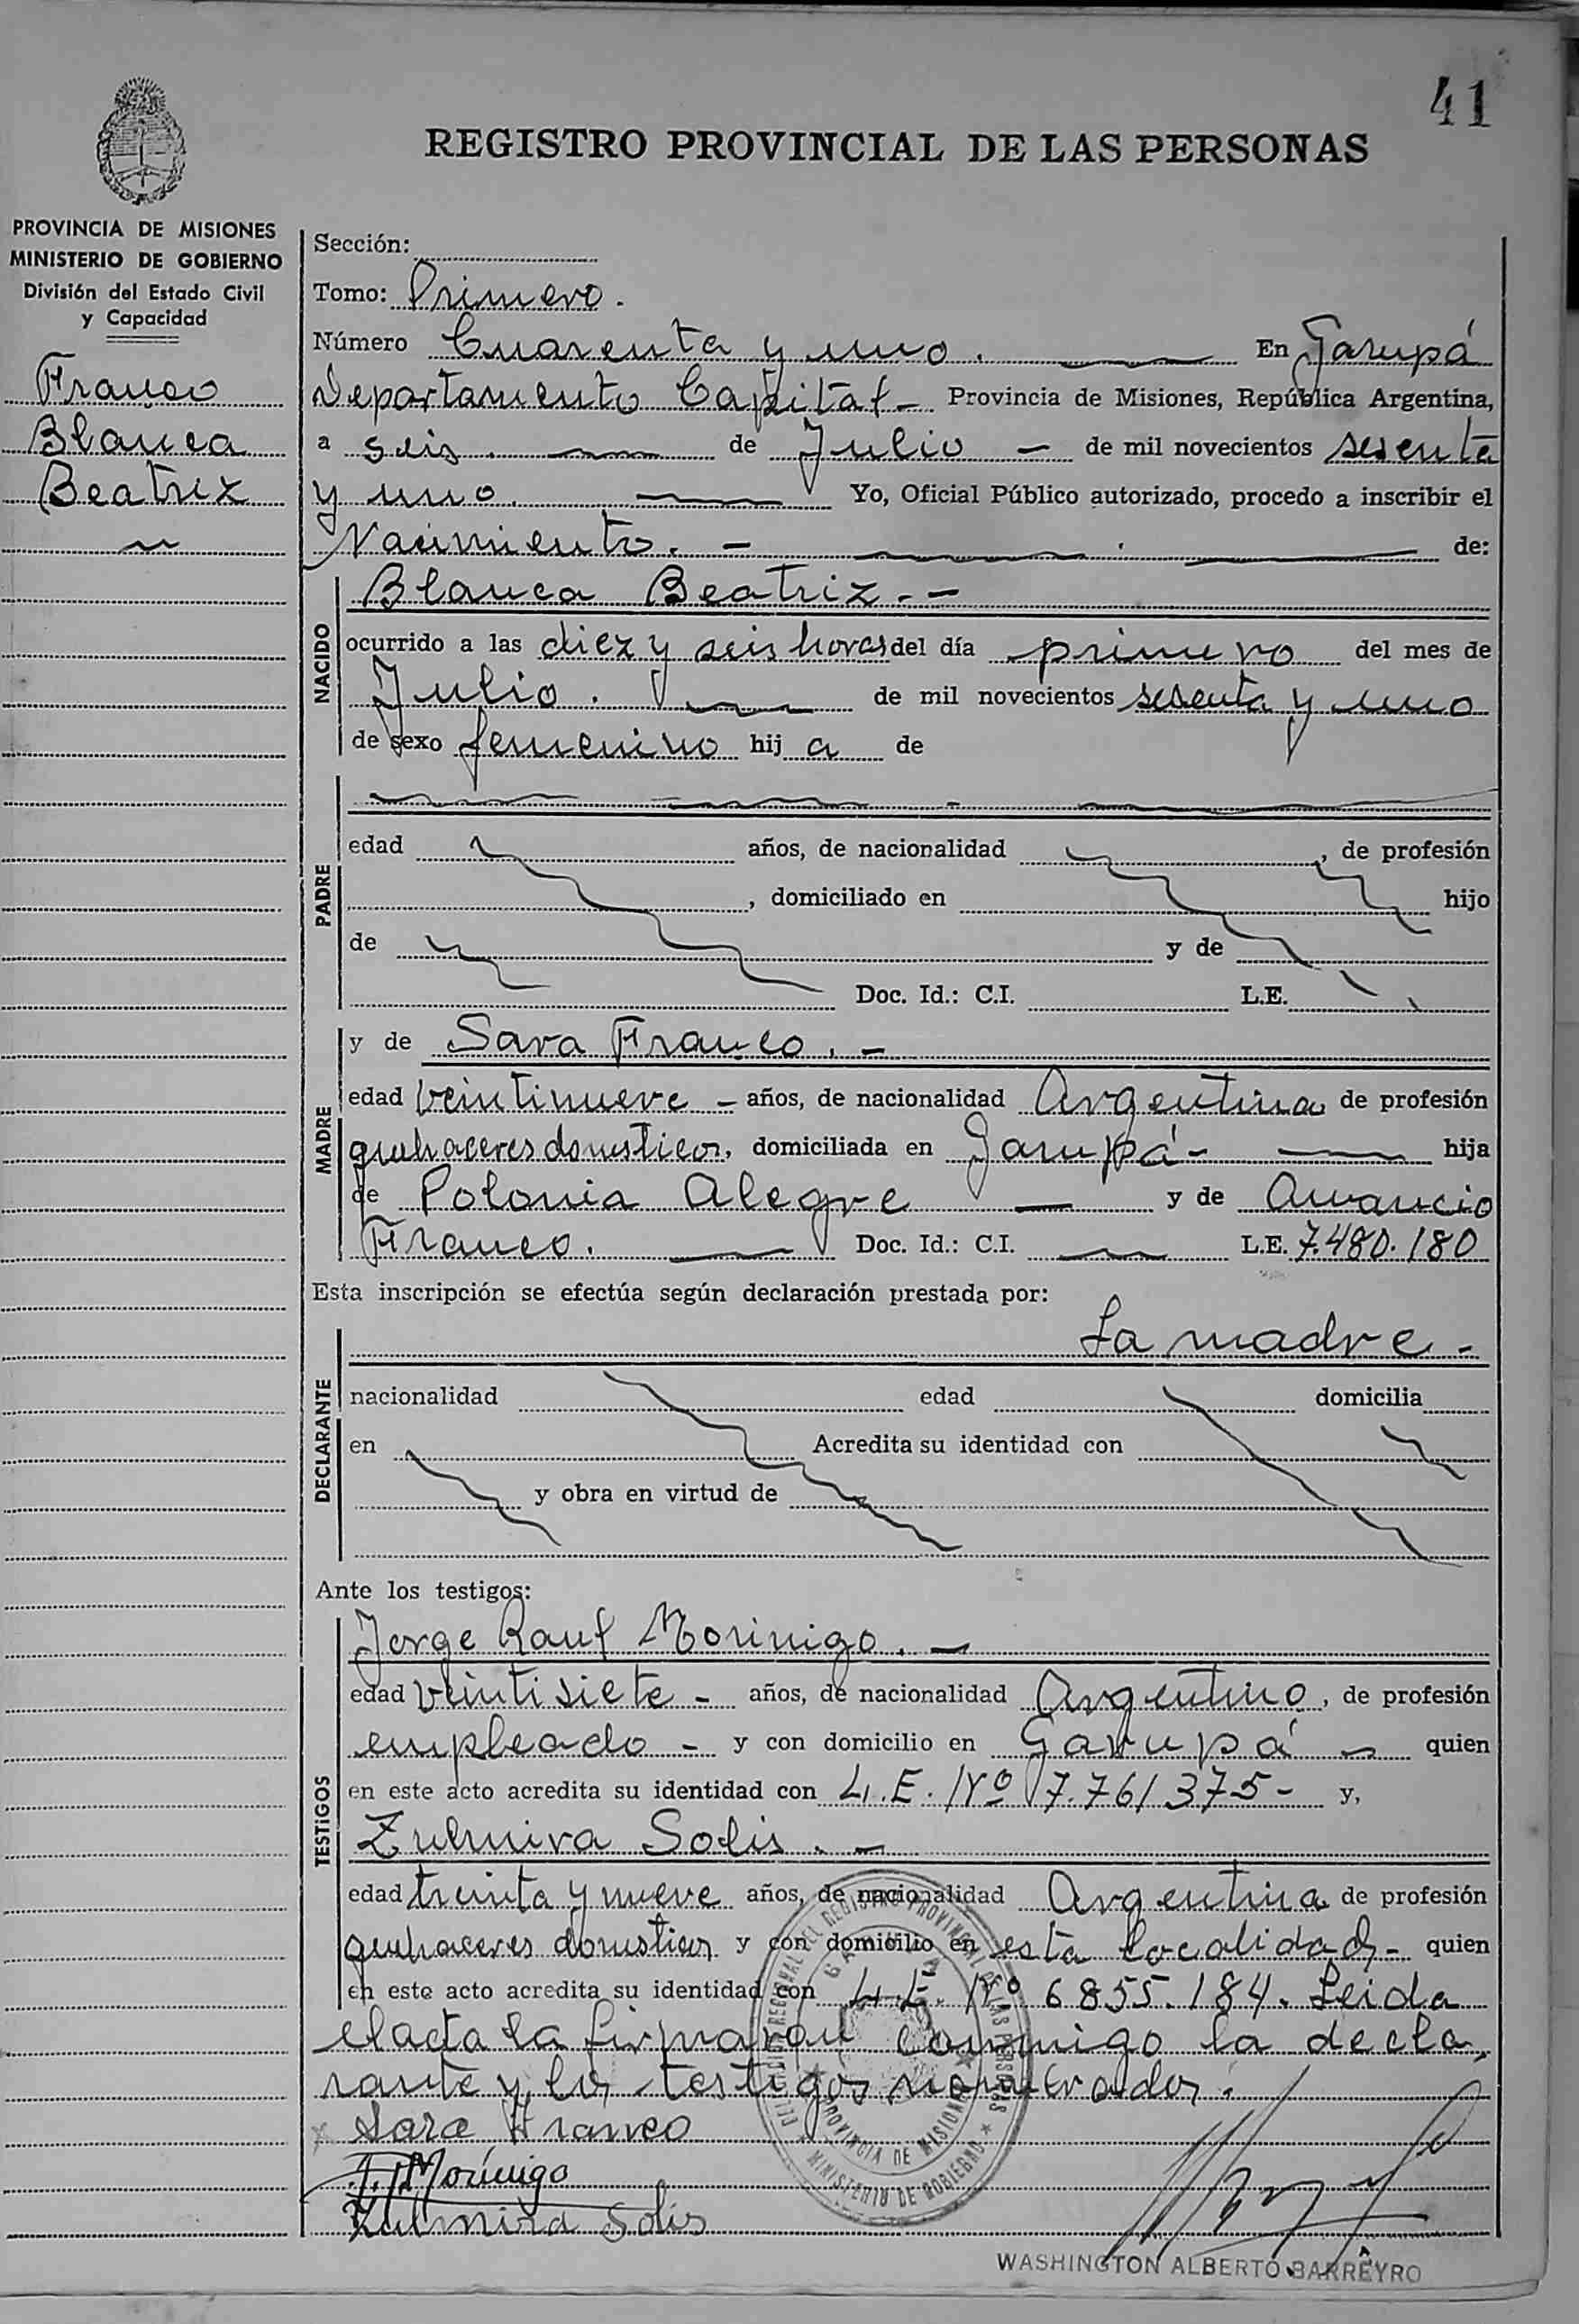 41
REGISTRO PROVINCIAL DE LAS PERSONAS
PROVINCIA DE MISIONES
MINISTERIO DE GOBIERNO
División del Estado Civil
y Capacidad
Franco
Blanca
Beatriz
Sección:
Tomo: Primero.
Número Cuarenta y uno. En Garupá
Departamento Capital - Provincia de Misiones, República Argentina,
a seis. de Julio - de mil novecientos sesenta
y uno. Yo, Oficial Público autorizado, procedo a inscribir el
Nacimiento. - de:
NACIDO
Blanca Beatriz. -
ocurrido a las diez y seis horas del día primero del mes de
Julio. de mil novecientos sesenta y uno
de sexo femenino hij a de
PADRE
edad años, de nacionalidad , de profesión
, domiciliado en hijo
de y de
Doc. Id.: C.I. L.E.
MADRE
y de Sara Franco. -
edad veintinueve - años, de nacionalidad Argentina de profesión
quehaceres domesticos, domiciliada en Garupá - hija
de Polonia Alegre y de Amancio
Franco. Doc. Id.: C.I. L.E. 7.480.180
Esta inscripción se efectúa según declaración prestada por:
DECLARANTE
La madre -
nacionalidad edad domicilia
en Acredita su identidad con
y obra en virtud de
Ante los testigos:
TESTIGOS
Jorge Raul Morinigo. -
edad veintisiete - años, de nacionalidad Argentino, de profesión
empleado - y con domicilio en Garupá quien
en este acto acredita su identidad con L.E. Nº 7.761375 - y,
Zulmira Solis. -
edad treinta y nueve años, de nacionalidad Argentina de profesión
quehaceres domesticos y con domicilio en esta localidad - quien
en este acto acredita su identidad con L.E. Nº 6855.184. Leida
el acta la firmaron conmigo la decla,
rante y los testigos nombrados.
Sara Franco
J. R. Morinigo
Zulmira Solis
DELEGACION REGIONAL DEL REGISTRO PROVINCIAL DE LAS PERSONAS
GARUPA
PROVINCIA DE MISIONES
MINISTERIO DE GOBIERNO
WASHINGTON ALBERTO BARREYRO